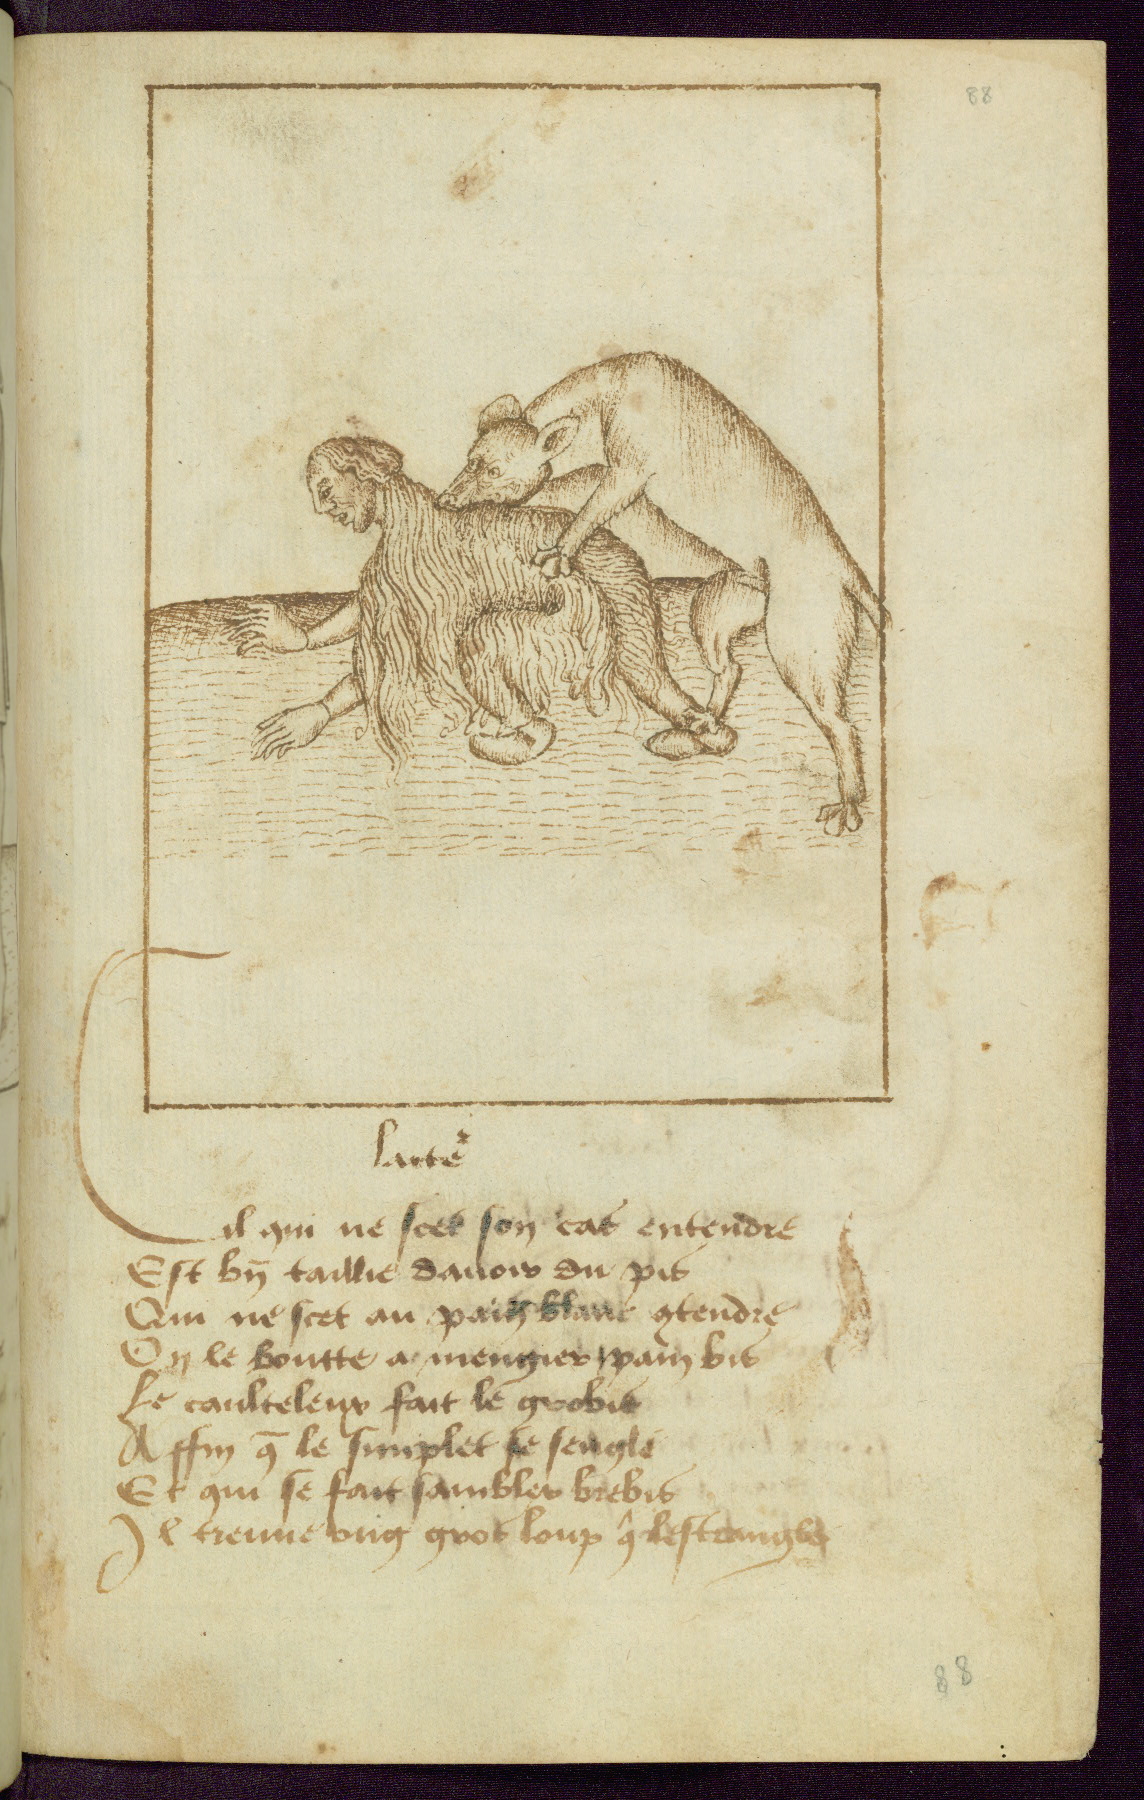 88
Lacte᷑
Cil qui ne scet son cas entendre
Est bn̄ taillie dauoir du pis
Qui ne scet au pain blanc ꝯtendre
On le boutte a mengier pain bis
Le caulteleux fait le grobis
Affin q̄ le simplet se sengle
Et qui se fait sambler brebis
Il treuue vng gros loup q̑ lestrangle
88